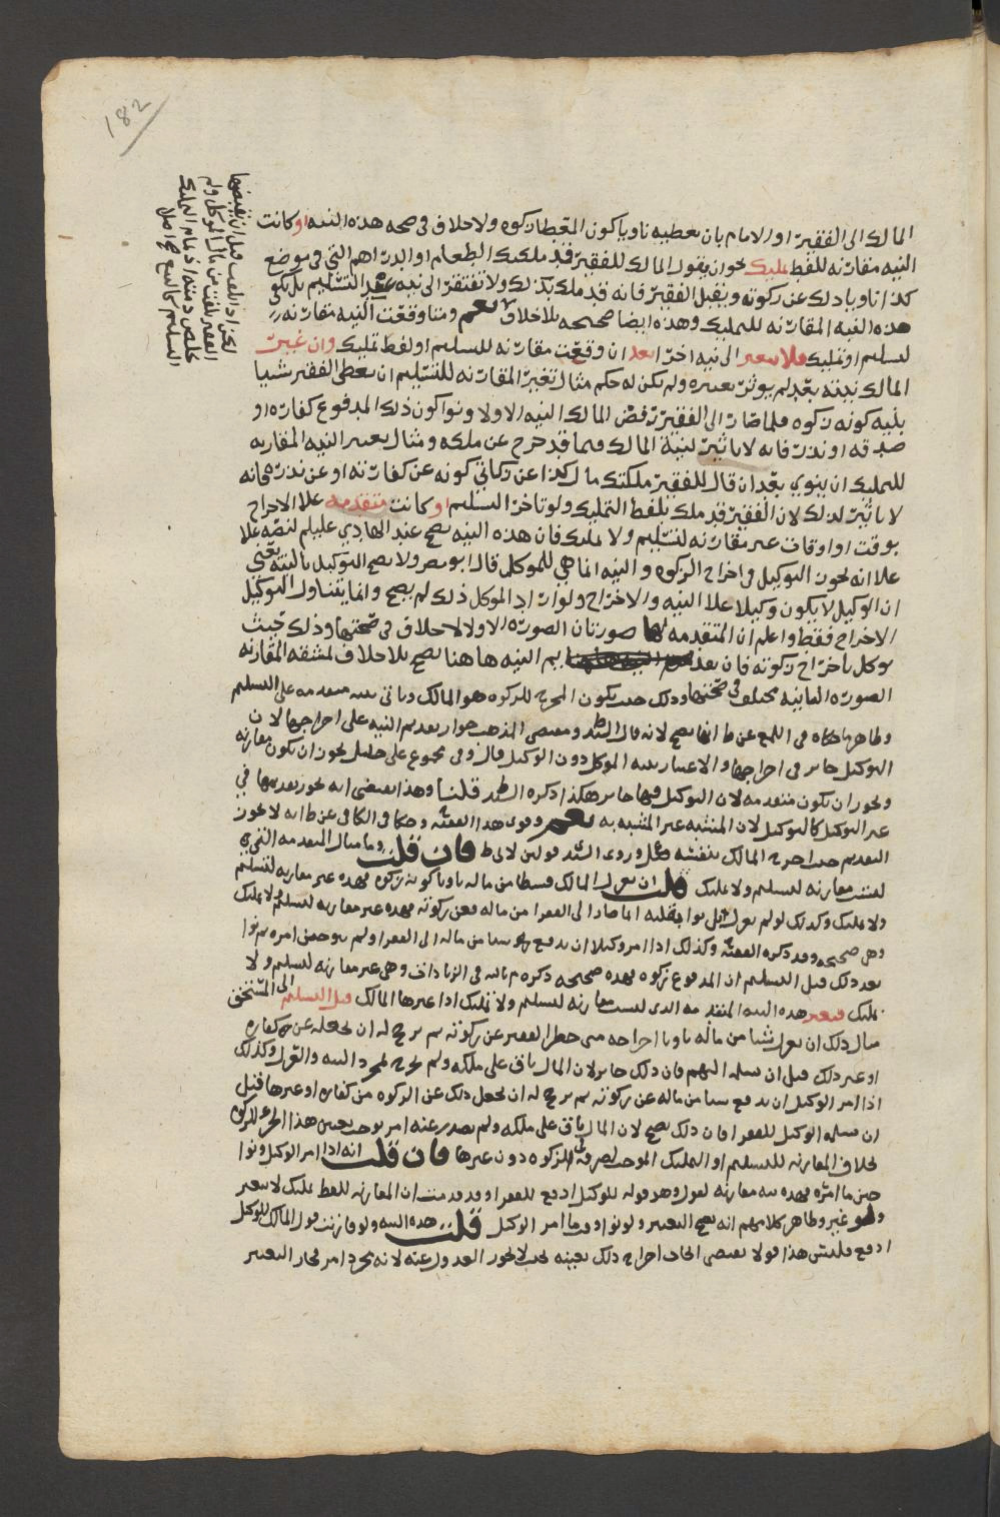 182
المالك الى الفقير او الامام بان يعطيه ناويا كون المعطا زكوه ولا خلاف في صحه هذه النيه او كانت
النيه مقارنه للفظ تمليك نحو ان يقول المالك للفقير قد ملكتك الطعام او الدراهم التي في موضع
كذا ناويا ذلك عن زكوته ويقبل الفقير فانه قد ملك بذلك ولا تفتقر الى نيه عند التسليم بل يكو
هذه النيه المقارنه للتمليك وهذه ايضا صحيحه بلا خلاف نعم ومتا وقعت النيه مقارنه
لتسليم او تمليك فلا تتغير الى نيه اخرا بعد ان وقعت مقارنه للتسليم او لفظ تمليك وان غيرت
المالك نيته بعد لم يوثر تغييره ولم يكن له حكم مثال تغير المقارنه للتسليم ان يعطي الفقير شيا
بنيه كونه زكوه فلما صار الى الفقير رفض المالك النيه الاولا ونوا كون ذلك المدفوع كفاره او
صدقه او نذر فانه لا تاثير لنية المالك فيما قد خرج عن ملكه ومثال تغيير النيه المقارنه
للتمليك ان ينوي بعد ان قال للفقير ملكتك مال كذا عن زكاتي كونه عن كفارته او عن نذر فانه
لا تاثير لذلك لان الفقير قد ملك بلفظ التمليك ولو تاخر التسليم او كانت متقدمه علا الاخراج
بوقت او اوقات غير مقارنه لتسليم ولا تمليك فان هذه النيه تصح عند الهادي عليلم لنصه علا
علا انه يجوز التوكيل في اخراج الزكوه والنيه انما هي للموكل قال ابو مضر ولا يصح التوكيل بالنيه يعني
ان الوكيل لا يكون وكيلا علا النيه والاخراج ولو اراد الموكل ذلك لم يصح وانما يتناول التوكيل
الاخراج فقط واعلم ان المتقدمه لها صورتان الصوره الاولا لا خلاف في صحتها وذلك حيث
يوكل باخراج زكوته فان تقديم النيه ها هنا يصح بلا خلاف لمشقه المقارنه
الصوره الثانيه مختلف في صحتها وذلك حيث يكون المخرج للزكوه هو المالك وياتي بنيه متقدمه على التسليم
وظاهر ما حكاه في اللمع عن ط انها تصح لانه قال ومقتضى المذهب جواز تقديم النيه على اخراجها لان
التوكيل جايز في اخراجها والاعتبار بنيه الموكل دون الوكيل قال وفي مجموع علي خليل يجوز ان تكون مقارنه
ويجوز ان تكون متقدمه لان التوكيل فيها جايز هكذا ذكره قلنا وهذا يقتضي انه يجوز تقديمها في
غير التوكيل كالتوكيل لان المشبه غير المشبه به نعم وقوى هذا الفقيه وحكا في الكافي عن ط انه لا يجوز
التقديم حيث اخرج المالك بنفسه قولين لابي ط فان قلت وما مثال المتقدمه التي
ليست مقارنه لتسليم ولا تمليك قلت ان يعزل المالك قسطا من ماله ناويا كونه زكوه فهذه غير مقارنه لتسليم
ولا تمليك وكذلك لو لم يعزل بل نوا بقلبه ان ما صار الى الفقرا من ماله فعن زكوته فهذه غير مقارنه لتسليم ولا تمليك
وهي صحيحه وقد ذكره الفقيه وكذلك اذا امر وكيلا ان يدفع شيا من ماله الى الفقرا ولم ينو حين امره ثم نوا
بعد ذلك قبل التسليم ان المدفوع زكوه فهذه صحيحه ذكره في الزيادات وهي غير مقارنه لتسليم ولا
تمليك فتغير هذه النيه المتقدمه الذي ليست مقارنه لتسليم ولا تمليك اذا غيرها المالك قبل التسليم الى المستحق
مثال ذلك ان يعزل شيا من ماله ناويا اخراجه متى حضر الفقير عن زكوته ثم ترجح له ان يجعله عن كفاره
او غير ذلك قبل ان يسلمه اليهم فان ذلك جايز لان المال باق على ملكه ولم يخرج بمجرد النيه والعزل وكذلك
اذا امر الوكيل ان يدفع شيا من ماله عن زكوته ثم ترجح له ان يجعل ذلك عن الزكوه من كفاره او غيرها قبل
ان يسلمه الوكيل للفقرا فان ذلك يصح لان المال باق على ملكه ولم يصدر عنه امر يوجب تعيين هذا الجزء للزكوه
بخلاف المقارنه للتسليم او التمليك الموجب لصرفه للزكوه دون غيرها فان قلت انه اذا امر الوكيل ونوا
حين ما امره فهذه نيه مقارنه لقول وهو قوله للوكيل ادفع للفقرا وقد قدمت ان المقارنه للفظ تمليك لا تتغير
وظاهر كلامهم انه يصح التغيير ولو نوا وقت ما امر الوكيل قلت هذه النيه ولو قارنت قول المالك للوكيل
ادفع فليس هذا قولا يقتضي ايجاب اخراج ذلك بعينه بحيث لا يجوز العدول عنه لانه مجرد امر فجاز التغيير
لكن اذا تلفت قبل ان يقبضها
الفقير تلفت من مال الموكل ولم
تخلص ذمته اذ تمام التمليك
التسليم كالبيع صح اصل